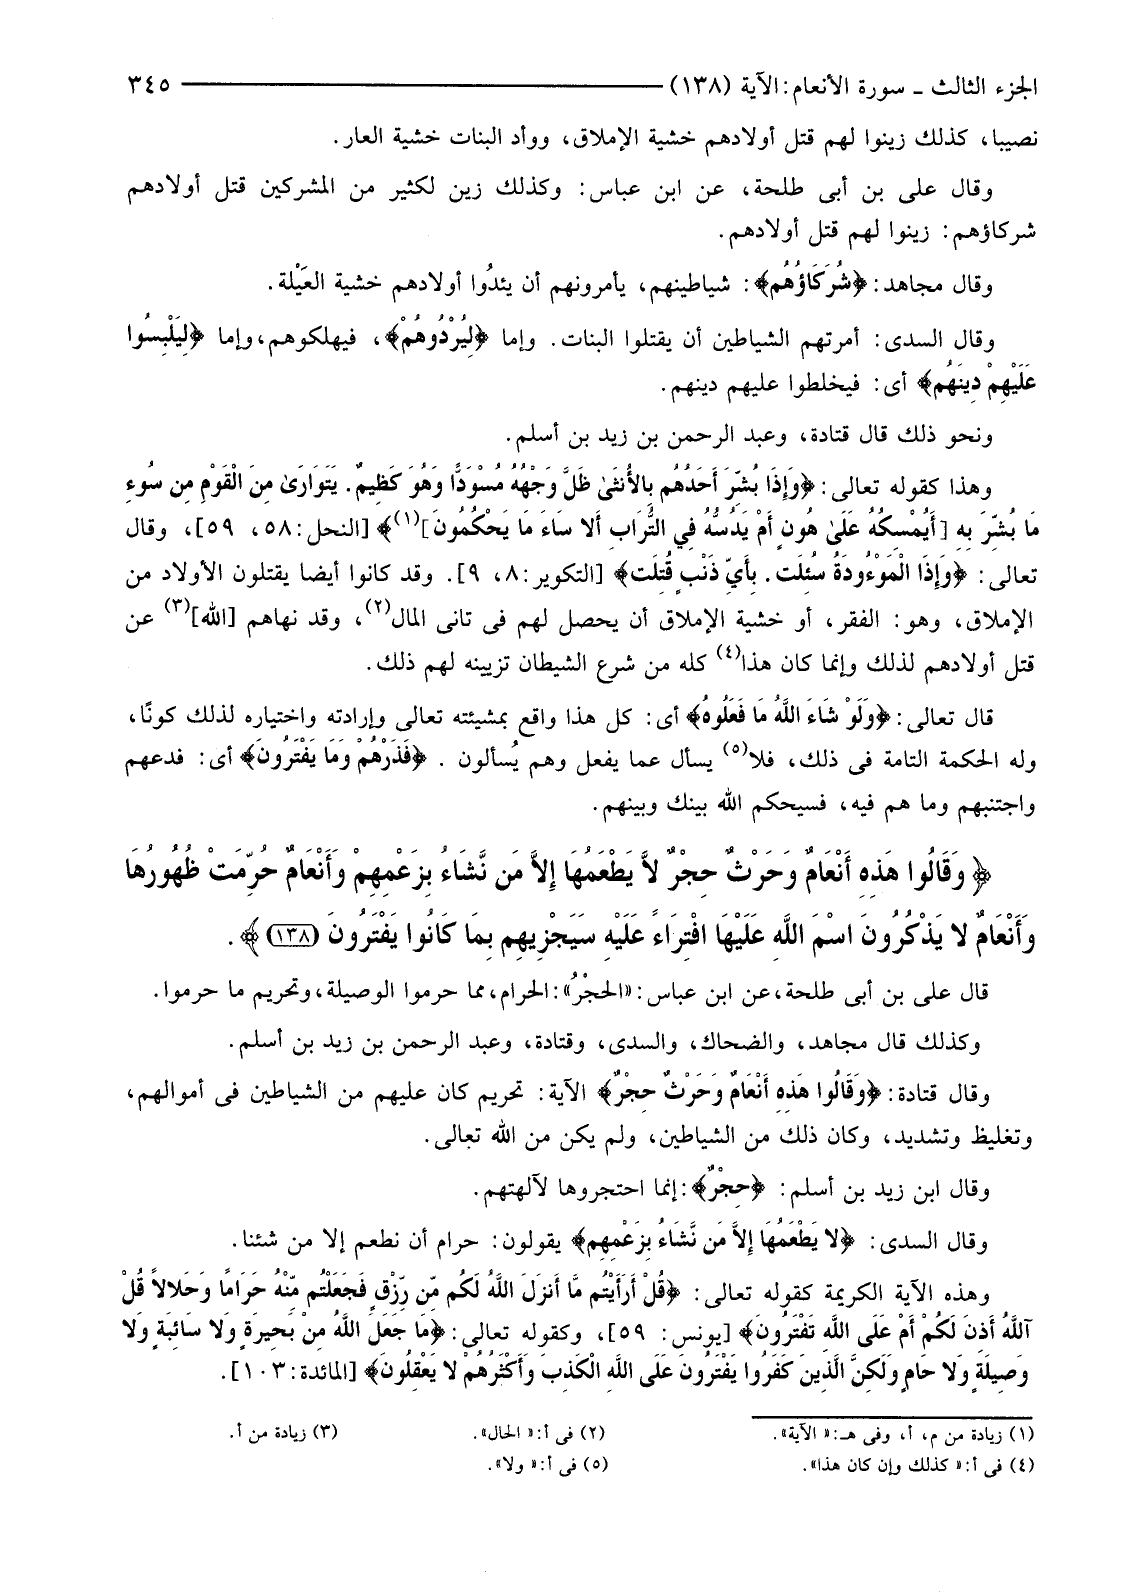 الجزء الثالث ـ سورة الأنعام: الآية (١٣٨) ٣٤٥
نصيبا، كذلك زينوا لهم قتل أولادهم خشية الإملاق، ووأد البنات خشية العار.
وقال على بن أبى طلحة، عن ابن عباس: وكذلك زين لكثير من المشركين قتل أولادهم
شركاؤهم: زينوا لهم قتل أولادهم.
وقال مجاهد: ﴿شُرَكَاؤُهُم﴾: شياطينهم، يأمرونهم أن يئدُوا أولادهم خشية العَيْلة.
وقال السدى: أمرتهم الشياطين أن يقتلوا البنات. وإما ﴿لِيُرْدُوهُمْ﴾، فيهلكوهم، وإما ﴿لِيَلْبِسُوا
عَلَيْهِمْ دِينَهُم﴾ أى: فيخلطوا عليهم دينهم.
ونحو ذلك قال قتادة، وعبد الرحمن بن زيد بن أسلم.
وهذا كقوله تعالى: ﴿وَإِذَا بُشِّرَ أَحَدُهُم بِالأُنثَىٰ ظَلَّ وَجْهُهُ مُسْوَدًّا وَهُوَ كَظِيمٌ. يَتَوَارَىٰ مِنَ الْقَوْمِ مِن سُوءِ
مَا بُشِّرَ بِهِ [أَيُمْسِكُهُ عَلَىٰ هُونٍ أَمْ يَدُسُّهُ فِي التُّرَابِ أَلا سَاءَ مَا يَحْكُمُونَ](١)﴾ [النحل: ٥٨، ٥٩]، وقال
تعالى: ﴿وَإِذَا الْمَوْءُودَةُ سُئِلَت. بِأَيِّ ذَنْبٍ قُتِلَت﴾ [التكوير: ٨، ٩]. وقد كانوا أيضا يقتلون الأولاد من
الإملاق، وهو: الفقر، أو خشية الإملاق أن يحصل لهم فى تانى المال(٢)، وقد نهاهم [الله](٣) عن
قتل أولادهم لذلك وإنما كان هذا(٤) كله من شرع الشيطان تزيينه لهم ذلك.
قال تعالى: ﴿وَلَوْ شَاءَ اللَّهُ مَا فَعَلُوهُ﴾ أى: كل هذا واقع بمشيئته تعالى وإرادته واختياره لذلك كونًا،
وله الحكمة التامة فى ذلك، فلا(٥) يسأل عما يفعل وهم يُسألون . ﴿فَذَرْهُمْ وَمَا يَفْتَرُونَ﴾ أى: فدعهم
واجتنبهم وما هم فيه، فسيحكم الله بينك وبينهم.
﴿وَقَالُوا هَذِهِ أَنْعَامٌ وَحَرْثٌ حِجْرٌ لاَّ يَطْعَمُهَا إِلاَّ مَن نَّشَاءُ بِزَعْمِهِمْ وَأَنْعَامٌ حُرِّمَتْ ظُهُورُهَا
وَأَنْعَامٌ لا يَذْكُرُونَ اسْمَ اللَّهِ عَلَيْهَا افْتِرَاءً عَلَيْهِ سَيَجْزِيهِم بِمَا كَانُوا يَفْتَرُونَ (١٣٨)﴾.
قال على بن أبى طلحة، عن ابن عباس: «الحجْرُ»: الحرام، مما حرموا الوصيلة، وتحريم ما حرموا.
وكذلك قال مجاهد، والضحاك، والسدى، وقتادة، وعبد الرحمن بن زيد بن أسلم.
وقال قتادة: ﴿وَقَالُوا هَذِهِ أَنْعَامٌ وَحَرْثٌ حِجْرٌ﴾ الآية: تحريم كان عليهم من الشياطين فى أموالهم،
وتغليظ وتشديد، وكان ذلك من الشياطين، ولم يكن من الله تعالى.
وقال ابن زيد بن أسلم: ﴿حِجْرٌ﴾: إنما احتجروها لآلهتهم.
وقال السدى: ﴿لا يَطْعَمُهَا إِلاَّ مَن نَّشَاءُ بِزَعْمِهِم﴾ يقولون: حرام أن نطعم إلا من شئنا.
وهذه الآية الكريمة كقوله تعالى: ﴿قُلْ أَرَأَيْتُم مَّا أَنزَلَ اللَّهُ لَكُم مِّن رِّزْقٍ فَجَعَلْتُم مِّنْهُ حَرَامًا وَحَلالاً قُلْ
آللَّهُ أَذِنَ لَكُمْ أَمْ عَلَى اللَّهِ تَفْتَرُونَ﴾ [يونس: ٥٩]، وكقوله تعالى: ﴿مَا جَعَلَ اللَّهُ مِنْ بَحِيرَةٍ وَلا سَائِبَةٍ وَلا
وَصِيلَةٍ وَلا حَامٍ وَلَكِنَّ الَّذِينَ كَفَرُوا يَفْتَرُونَ عَلَى اللَّهِ الْكَذِبَ وَأَكْثَرُهُمْ لا يَعْقِلُونَ﴾ [المائدة: ١٠٣].
(١) زيادة من م، أ، وفى هـ: « الآية». (٢) فى أ: « الحال». (٣) زيادة من أ.
(٤) فى أ: « كذلك وإن كان هذا». (٥) فى أ: « ولا».